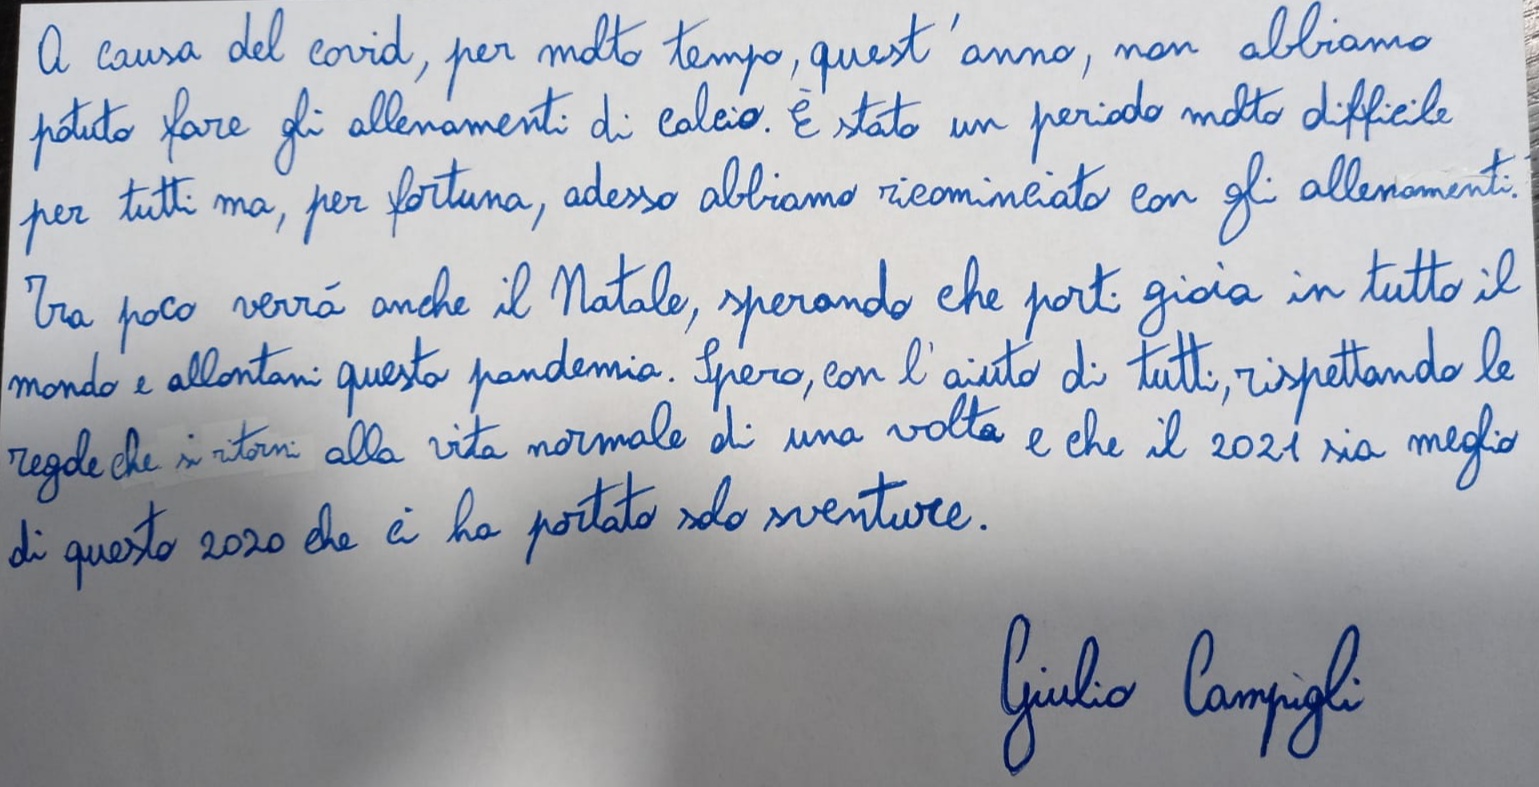 A causa del covid, per molto tempo, quest'anno, non abbiamo
potuto fare gli allenamenti di calcio. È stato un periodo molto difficile
per tutti ma, per fortuna, adesso abbiamo ricominciato con gli allenamenti.
Tra poco verrá anche il Natale, sperando che porti gioia in tutto il
mondo e allontani questa pandemia. Spero, con l'aiuto di tutti, rispettando le
regole che si ritorni alla vita normale di una volta e che il 2021 sia meglio
di questo 2020 che ci ha portato solo sventure.
Giulio Campigli